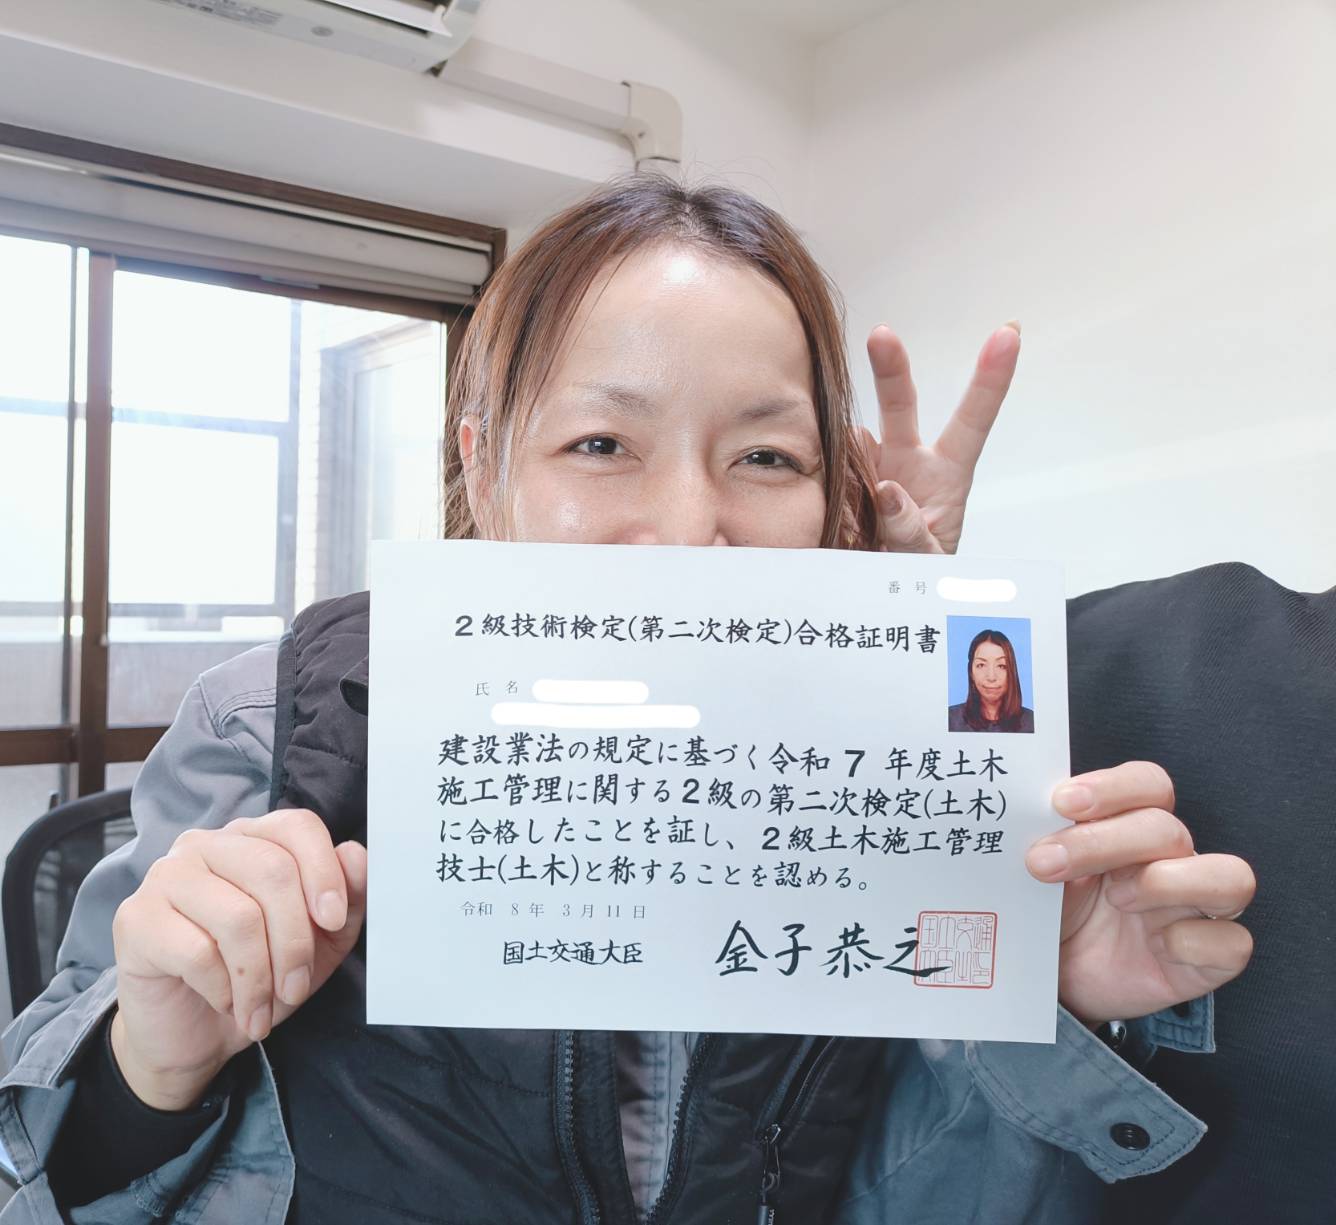 番 号
2級技術検定(第二次検定)合格証明書
氏 名
建設業法の規定に基づく令和 7 年度土木
施工管理に関する2級の第二次検定(土木)
に合格したことを証し、2級土木施工管理
技士(土木)と称することを認める。
令和 8 年 3 月 11 日
国土交通大臣 金子恭之